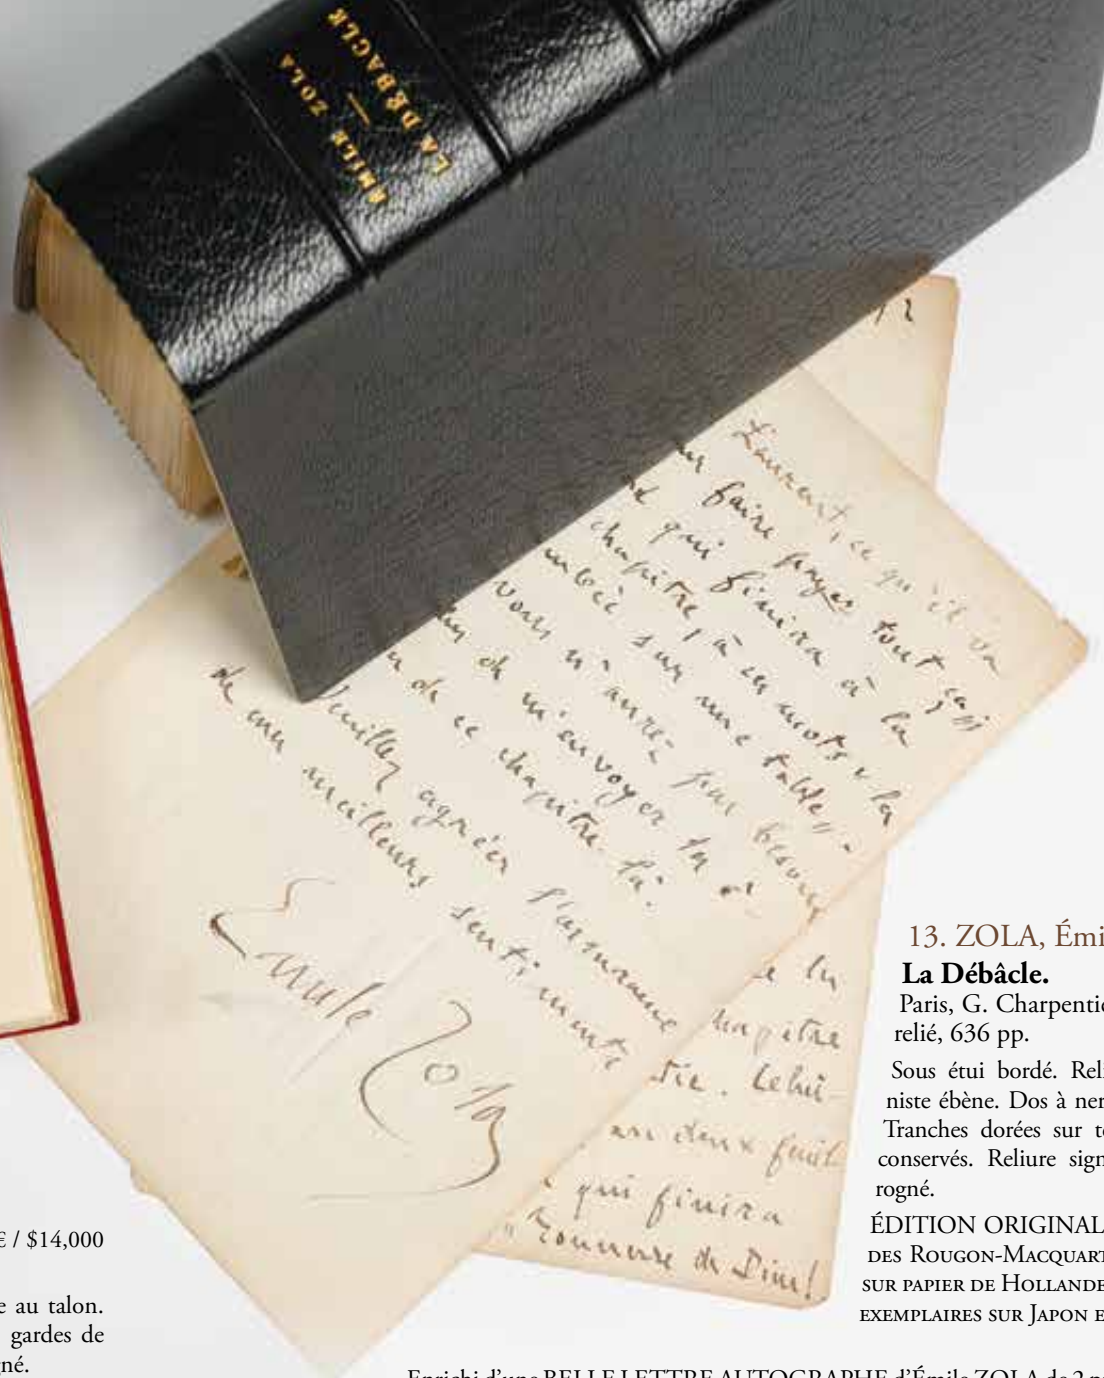 ÉMILE ZOLA
—
LA DÉBÂCLE
Laurent, ce qu'il va
faire payer tout cas
qui finira à la
chapitre, à ces mots : la
sur une table
vous n'aurez pas besoin
de m'envoyer la
de ce chapitre-là.
Veuillez agréer l'assurance
de mes meilleurs sentiments
Emile Zola
la
chapitre
deux feuil-
qui finira
Tonnerre de Dieu!
13. ZOLA, Émi
La Débâcle.
Paris, G. Charpentie
relié, 636 pp.
Sous étui bordé. Reli
niste ébène. Dos à ner
Tranches dorées sur t
conservés. Reliure sign
rogné.
ÉDITION ORIGINAL
DES ROUGON-MACQUART
SUR PAPIER DE HOLLANDE
EXEMPLAIRES SUR JAPON E
€ / $14,000
e au talon.
gardes de
gné.
Enrichi d'une BELLE LETTRE AUTOGRAPHE d'Émile ZOLA de 2 p